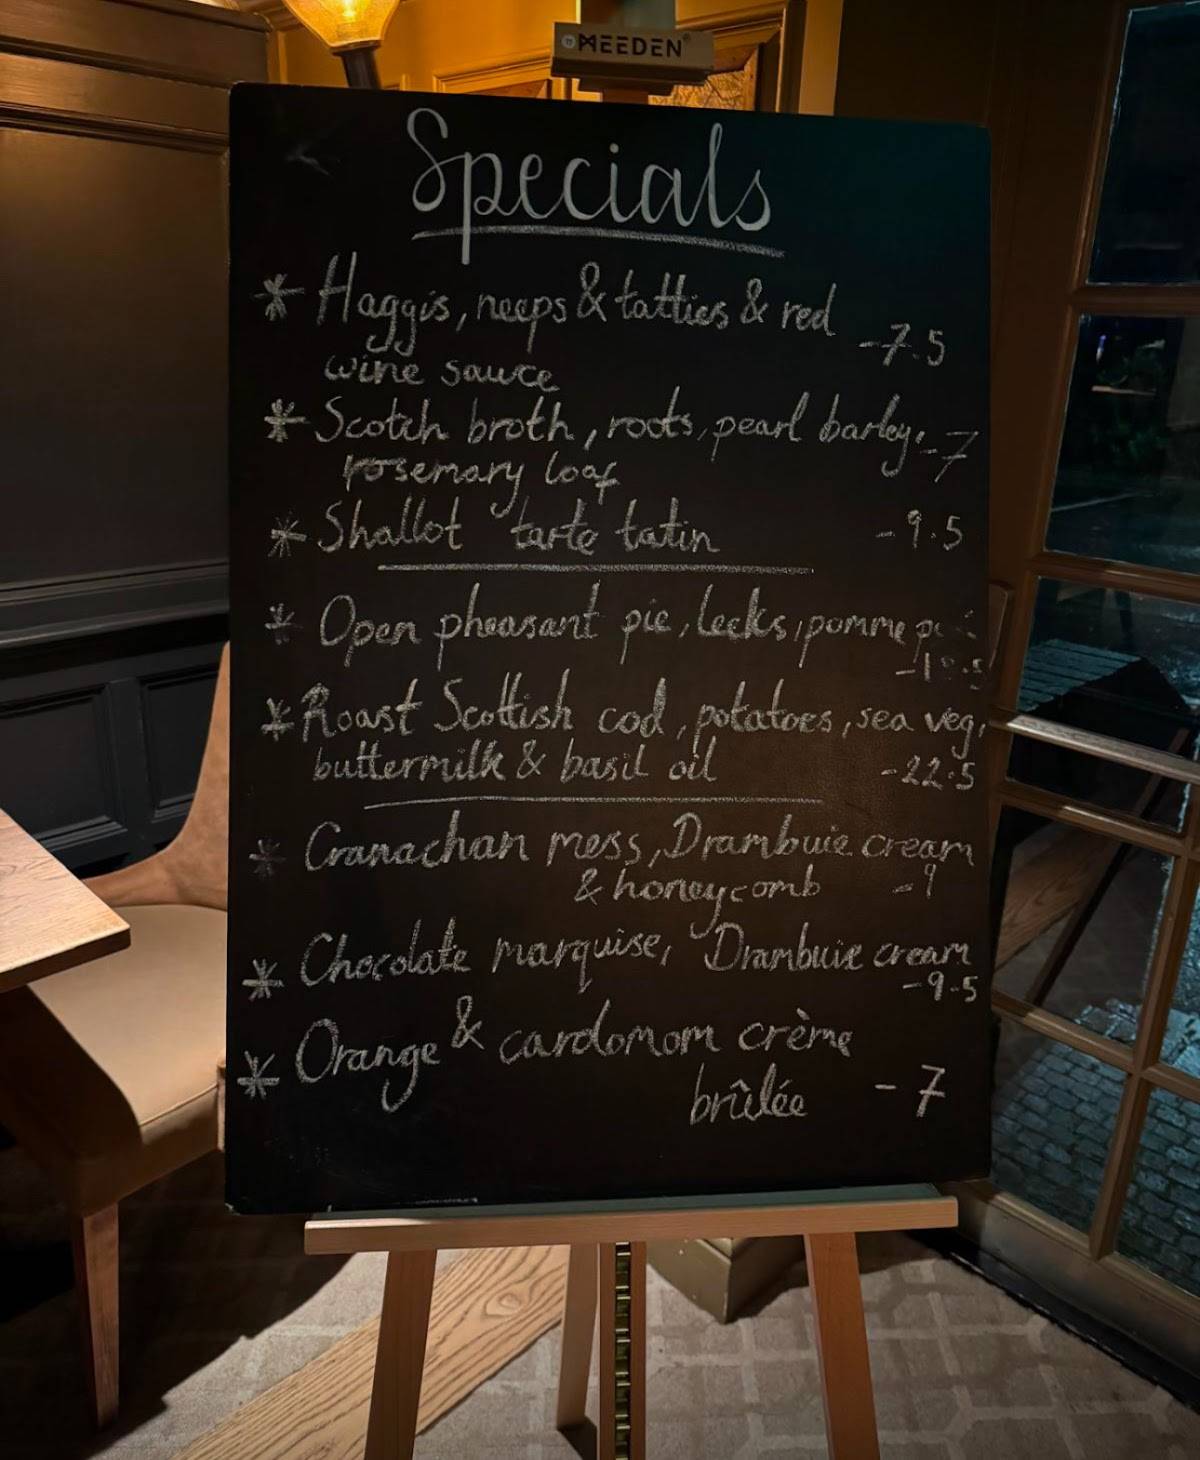 MEEDEN
Specials
* Haggis, neeps & tatties & red
wine sauce -7.5
* Scotch broth, roots, pearl barley, -7
rosemary loaf
* Shallot tarte tatin -9.5
* Open pheasant pie, leeks, pomme
* Roast Scottish cod, potatoes, sea veg,
buttermilk & basil oil -22.5
* Cranachan mess, Drambuie cream
& honeycomb -9
* Chocolate marquise, Drambuie cream
-9.5
* Orange & cardomom crème
brûlée -7